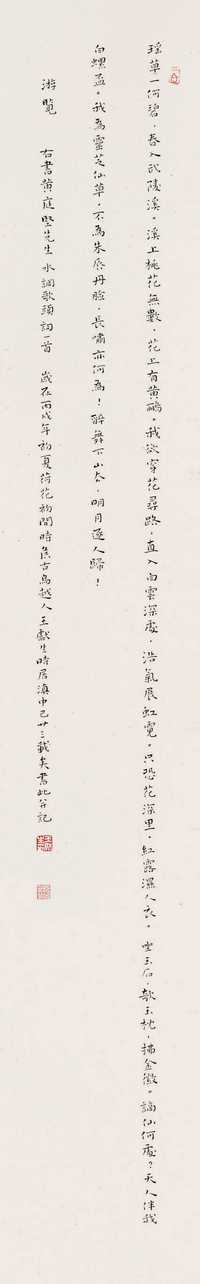 瑶草一何碧，春入武陵溪。溪上桃花無數，花上有黄鸝。我欲穿花尋路，直入白雲深處，浩氣展虹霓。只恐花深里，紅露濕人衣。坐玉石，欹玉枕，拂金徽。謫仙何處？天人伴我
白螺盃。我爲靈芝仙草，不爲朱唇丹臉，長嘯亦何爲！醉舞下山去，明月逐人歸！
游覽
右書黄庭堅先生水調歌頭詞一首 歲在丙戌年初夏荷花初開時焦古爲越人王獻生時居滇中已廿三載矣書此并記